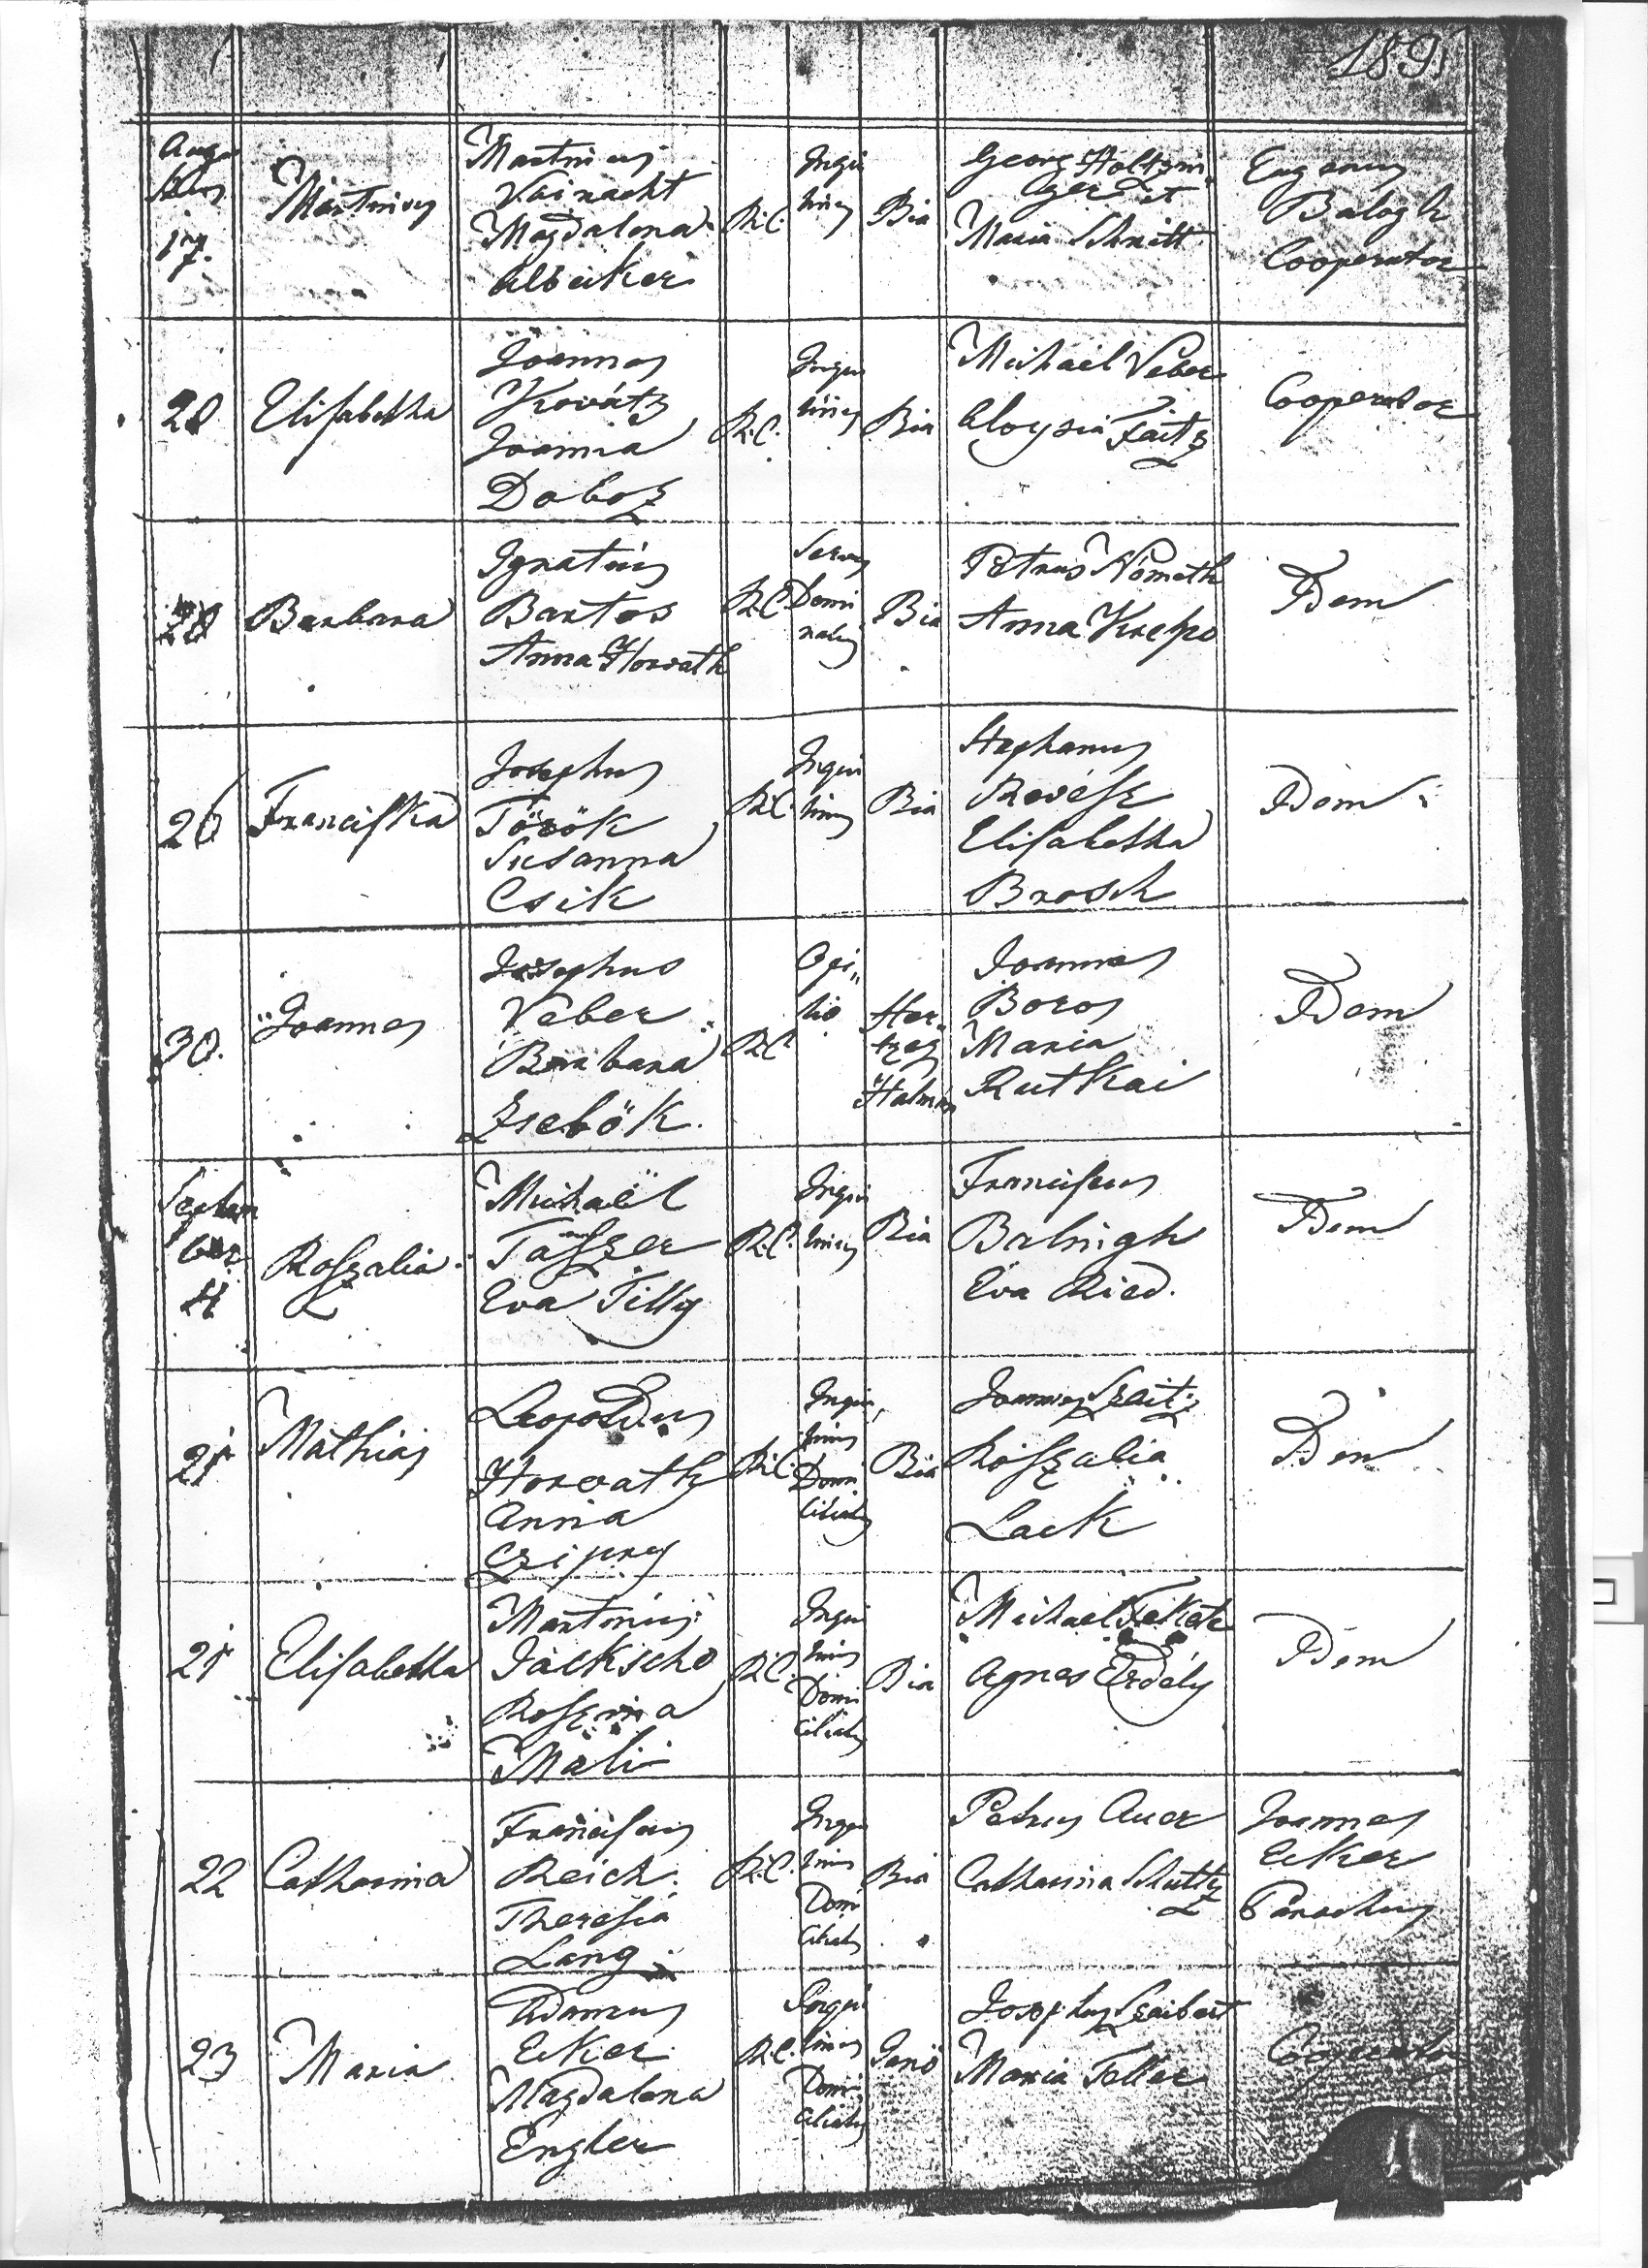 189
Augu
stus
17.
Martinus
Martinus
Vainacht
Magdalena
Albeker
R.C.
Inqui
linus
Bia
Georg Holtzin
ger et
Maria Schmitt
Eugenius
Balogh
Cooperator
28
Elisabetha
Joannes
Kovátz
Joanna
Doboz
R.C.
Inqui
linus
Bia
Michael Veber
Aloysia Faitz
Cooperator
28
Barbara
Ignatius
Bartos
Anna Horvath
R.C.
Servus
Domi
nalis
Bia
Petrus Németh
Anna Krepo
Idem
26
Franciska
Josephus
Török
Susanna
Csik
R.C.
Inqui
linus
Bia
Stephanus
Revész
Elisabetha
Brosch
Idem
30.
Joannes
Josephus
Veber
Barbara
Zsebök.
R.C.
Opi„
lio
Her„
tzeg
Halmás
Joannes
Boros
Maria
Rutkai
Idem
Septem
ber
4
Roszalia
Michaël
Taszer
Eva Tilly
R.C.
Inqui
linus
Bia
Franciscus
Balingh
Eva Ried.
Idem
21
Mathias
Leopoldus
Horvath
Anna
Czipry
R.C.
Inqui
linus
Domi
ciliatus
Bia
Joannes Szeitz
Roszalia
Lack
Idem
21
Elisabetha
Martinus
Jäckscho
Roszina
Mali
R.C.
Inqui
linus
Domi
ciliatus
Bia
Michael Fekete
Agnes Erdély
Idem
22
Catharina
Franciscus
Reich
Theresia
Lang
R.C.
Inqui
linus
Domi
ciliatus
Bia
Petrus Auer
Catharina Schultz
Joannes
Eker
Parochus
23
Maria
Adamus
Eker
Magdalena
Engler
R.C.
Inqui
linus
Domi
ciliatus
Josephus Szeibert
Maria Feller
Cooperator